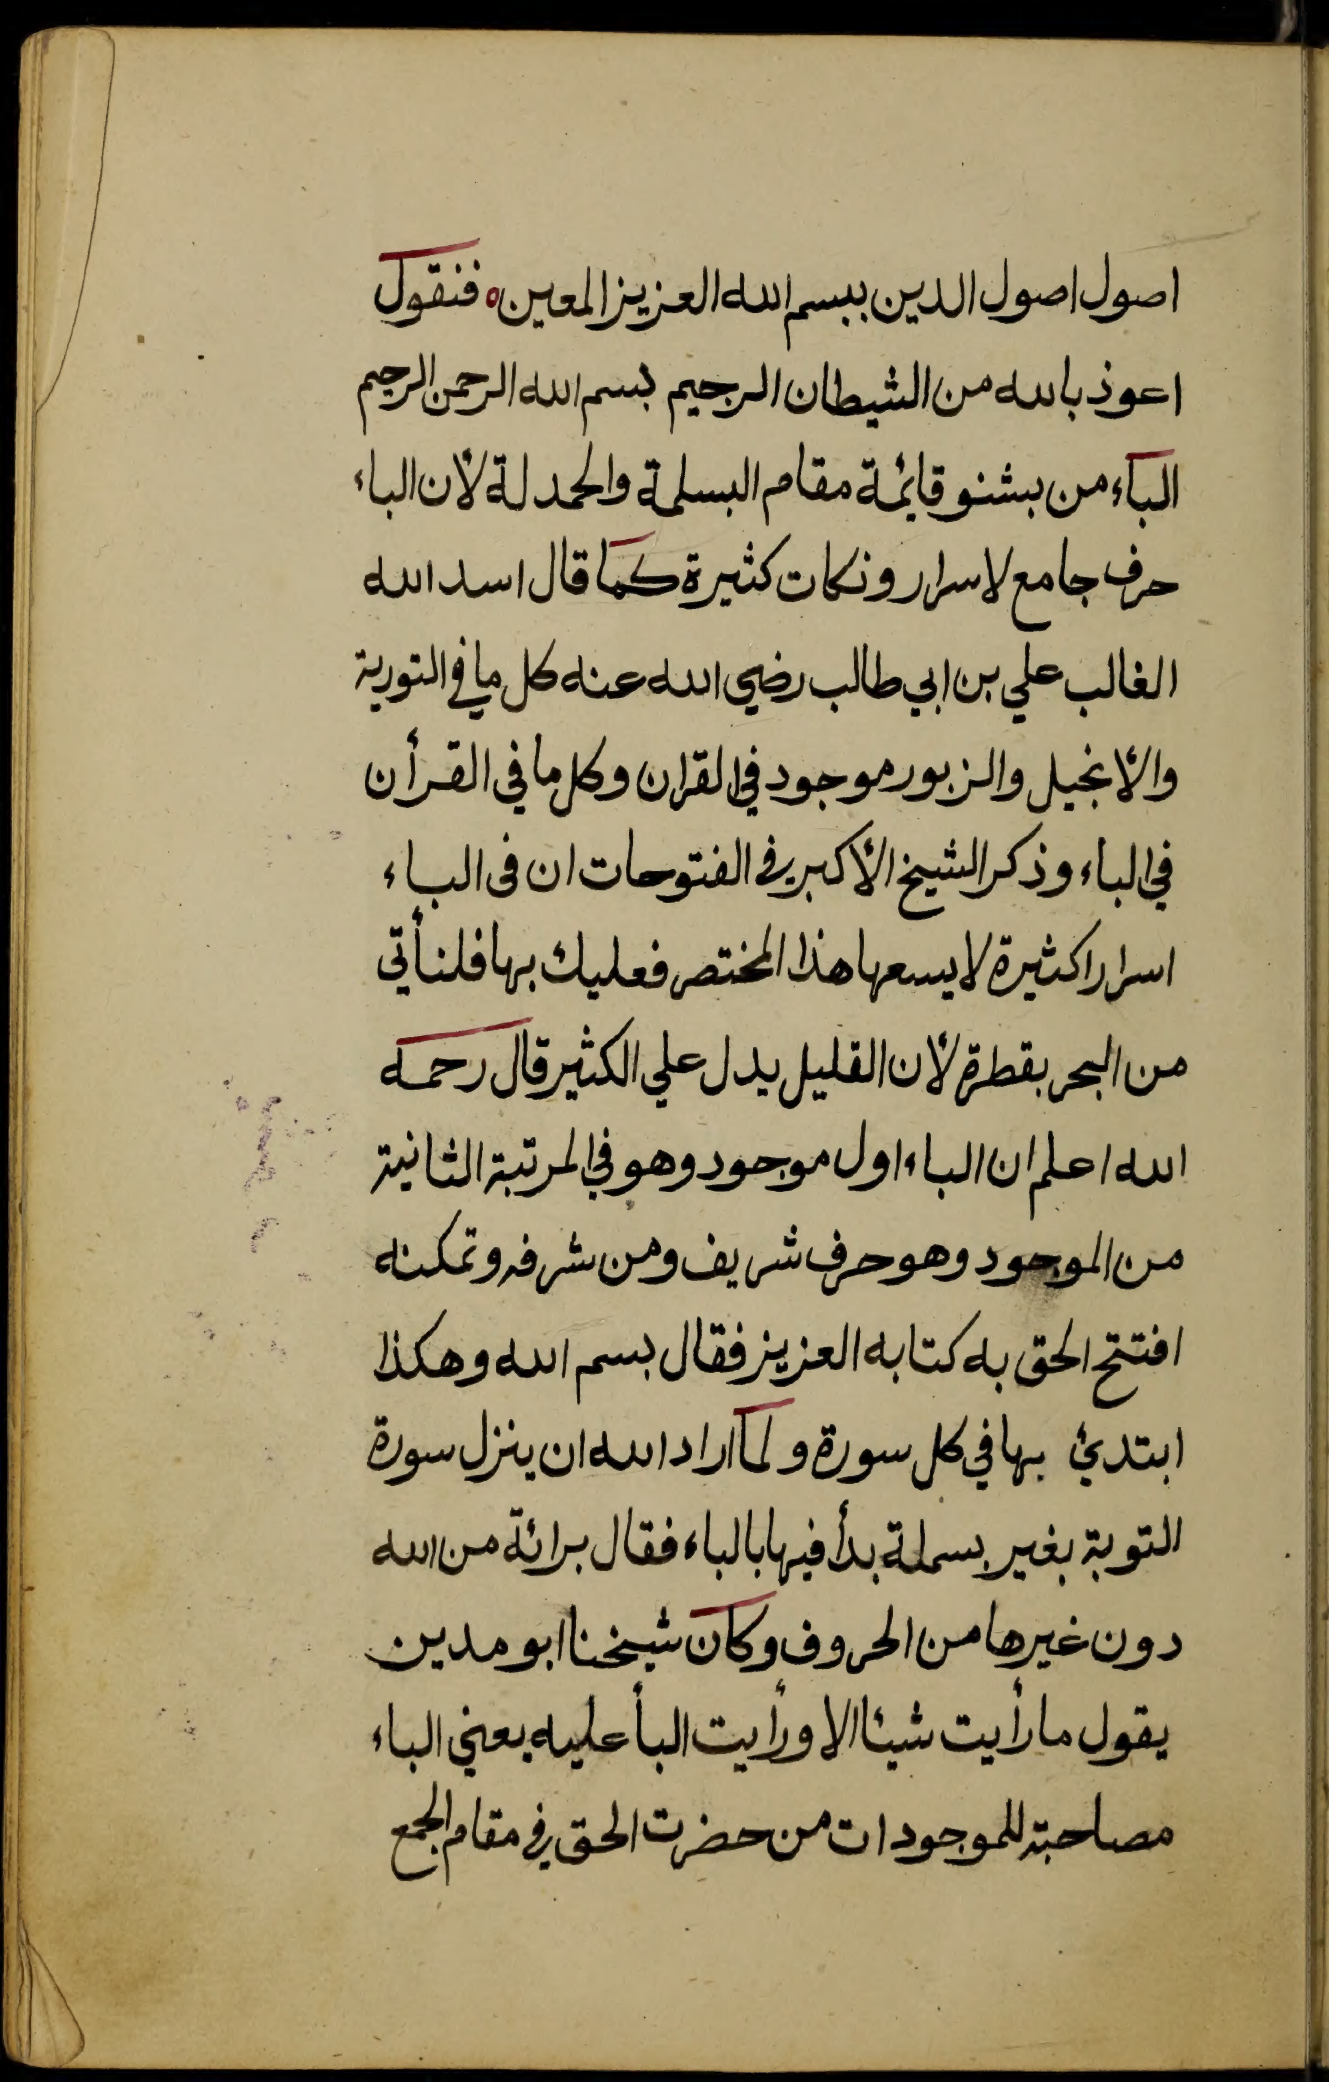 اصول اصول الدين ببسم الله العزيز المعين ه فنقول
اعوذ بالله من الشيطان الرجيم بسم الله الرحمن الرحيم
الباء من بشنو قايمة مقام البسملة والحمدلة لأن الباء
حرف جامع لاسرار ونكات كثيرة كما قال اسد الله
الغالب علي بن ابي طالب رضي الله عنه كل ما في التورية
والأنجيل والزبور موجود في القران وكل ما في القرأن
في الباء وذكر الشيخ الأكبر في الفتوحات ان فى الباء
اسرارا كثيرة لا يسعها هذا المختصر فعليك بها فلنأتي
من البحر بقطرة لأن القليل يدل علي الكثير قال رحمه
الله اعلم ان الباء اول موجود وهو في المرتبة الثانية
من الموجود وهو حرف شريف ومن شرفه وتمكنه
افتتح الحق به كتابه العزيز فقال بسم الله وهكذا
ابتدئ بها في كل سورة ولما اراد الله ان ينزل سورة
التوبة بغير بسملة بدأ فيها بالباء فقال برائة من الله
دون غيرها من الحروف وكان شيخنا ابو مدين
يقول ما رأيت شيئا الا ورأيت البأ عليه يعني الباء
مصاحبة للموجودات من حضرت الحق في مقام الجمع